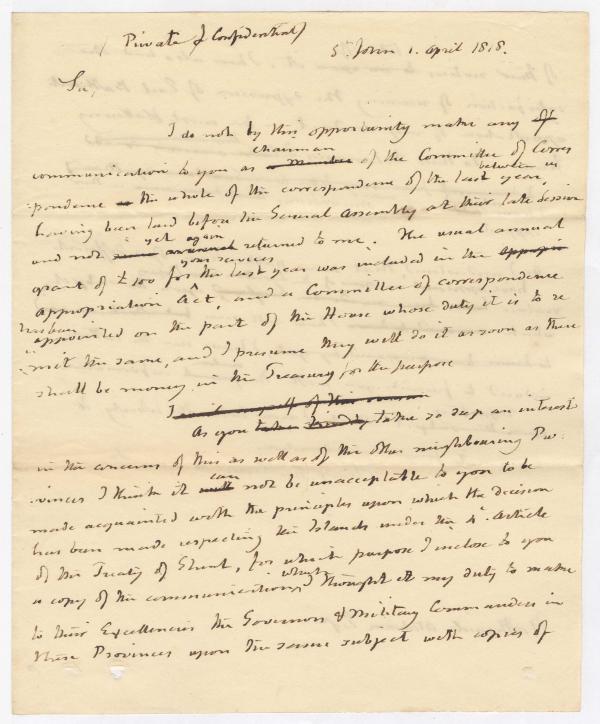 Private & Confidential
S. John 1. April 1818.
Sir,
I do not by this opportunity make any of
chairman
communication to you as a Member of the Committee of Corres
between us
pondence the whole of the correspondence of the last year,
having been laid before the General Assembly at their late Session
yet again
and not returned to me. The usual annual
your services
grant of £100 for the last year was included in the appropri
appropriation Act, and a Committee of correspondence
has been
appointed on the part of the House whose duty it is to re
mit the same, and I presume they will do it as soon as there
shall be money in the Treasury for the purpose
I avail myself of this occasion
As you taken kindly take so deep an interest
in the concerns of this as well as of the other neighbouring Pro:
can
vinces I think it will not be unacceptable to you to be
made acquainted with the principles upon which the decision
has been made respecting the Islands under the 4th. Article
of the Treaty of Ghent, for which purpose I inclose to you
which
a copy of the communication, I thought it my duty to make
to their Excellencies the Governors & Military Commanders in
these Provinces upon the same subject with copies of